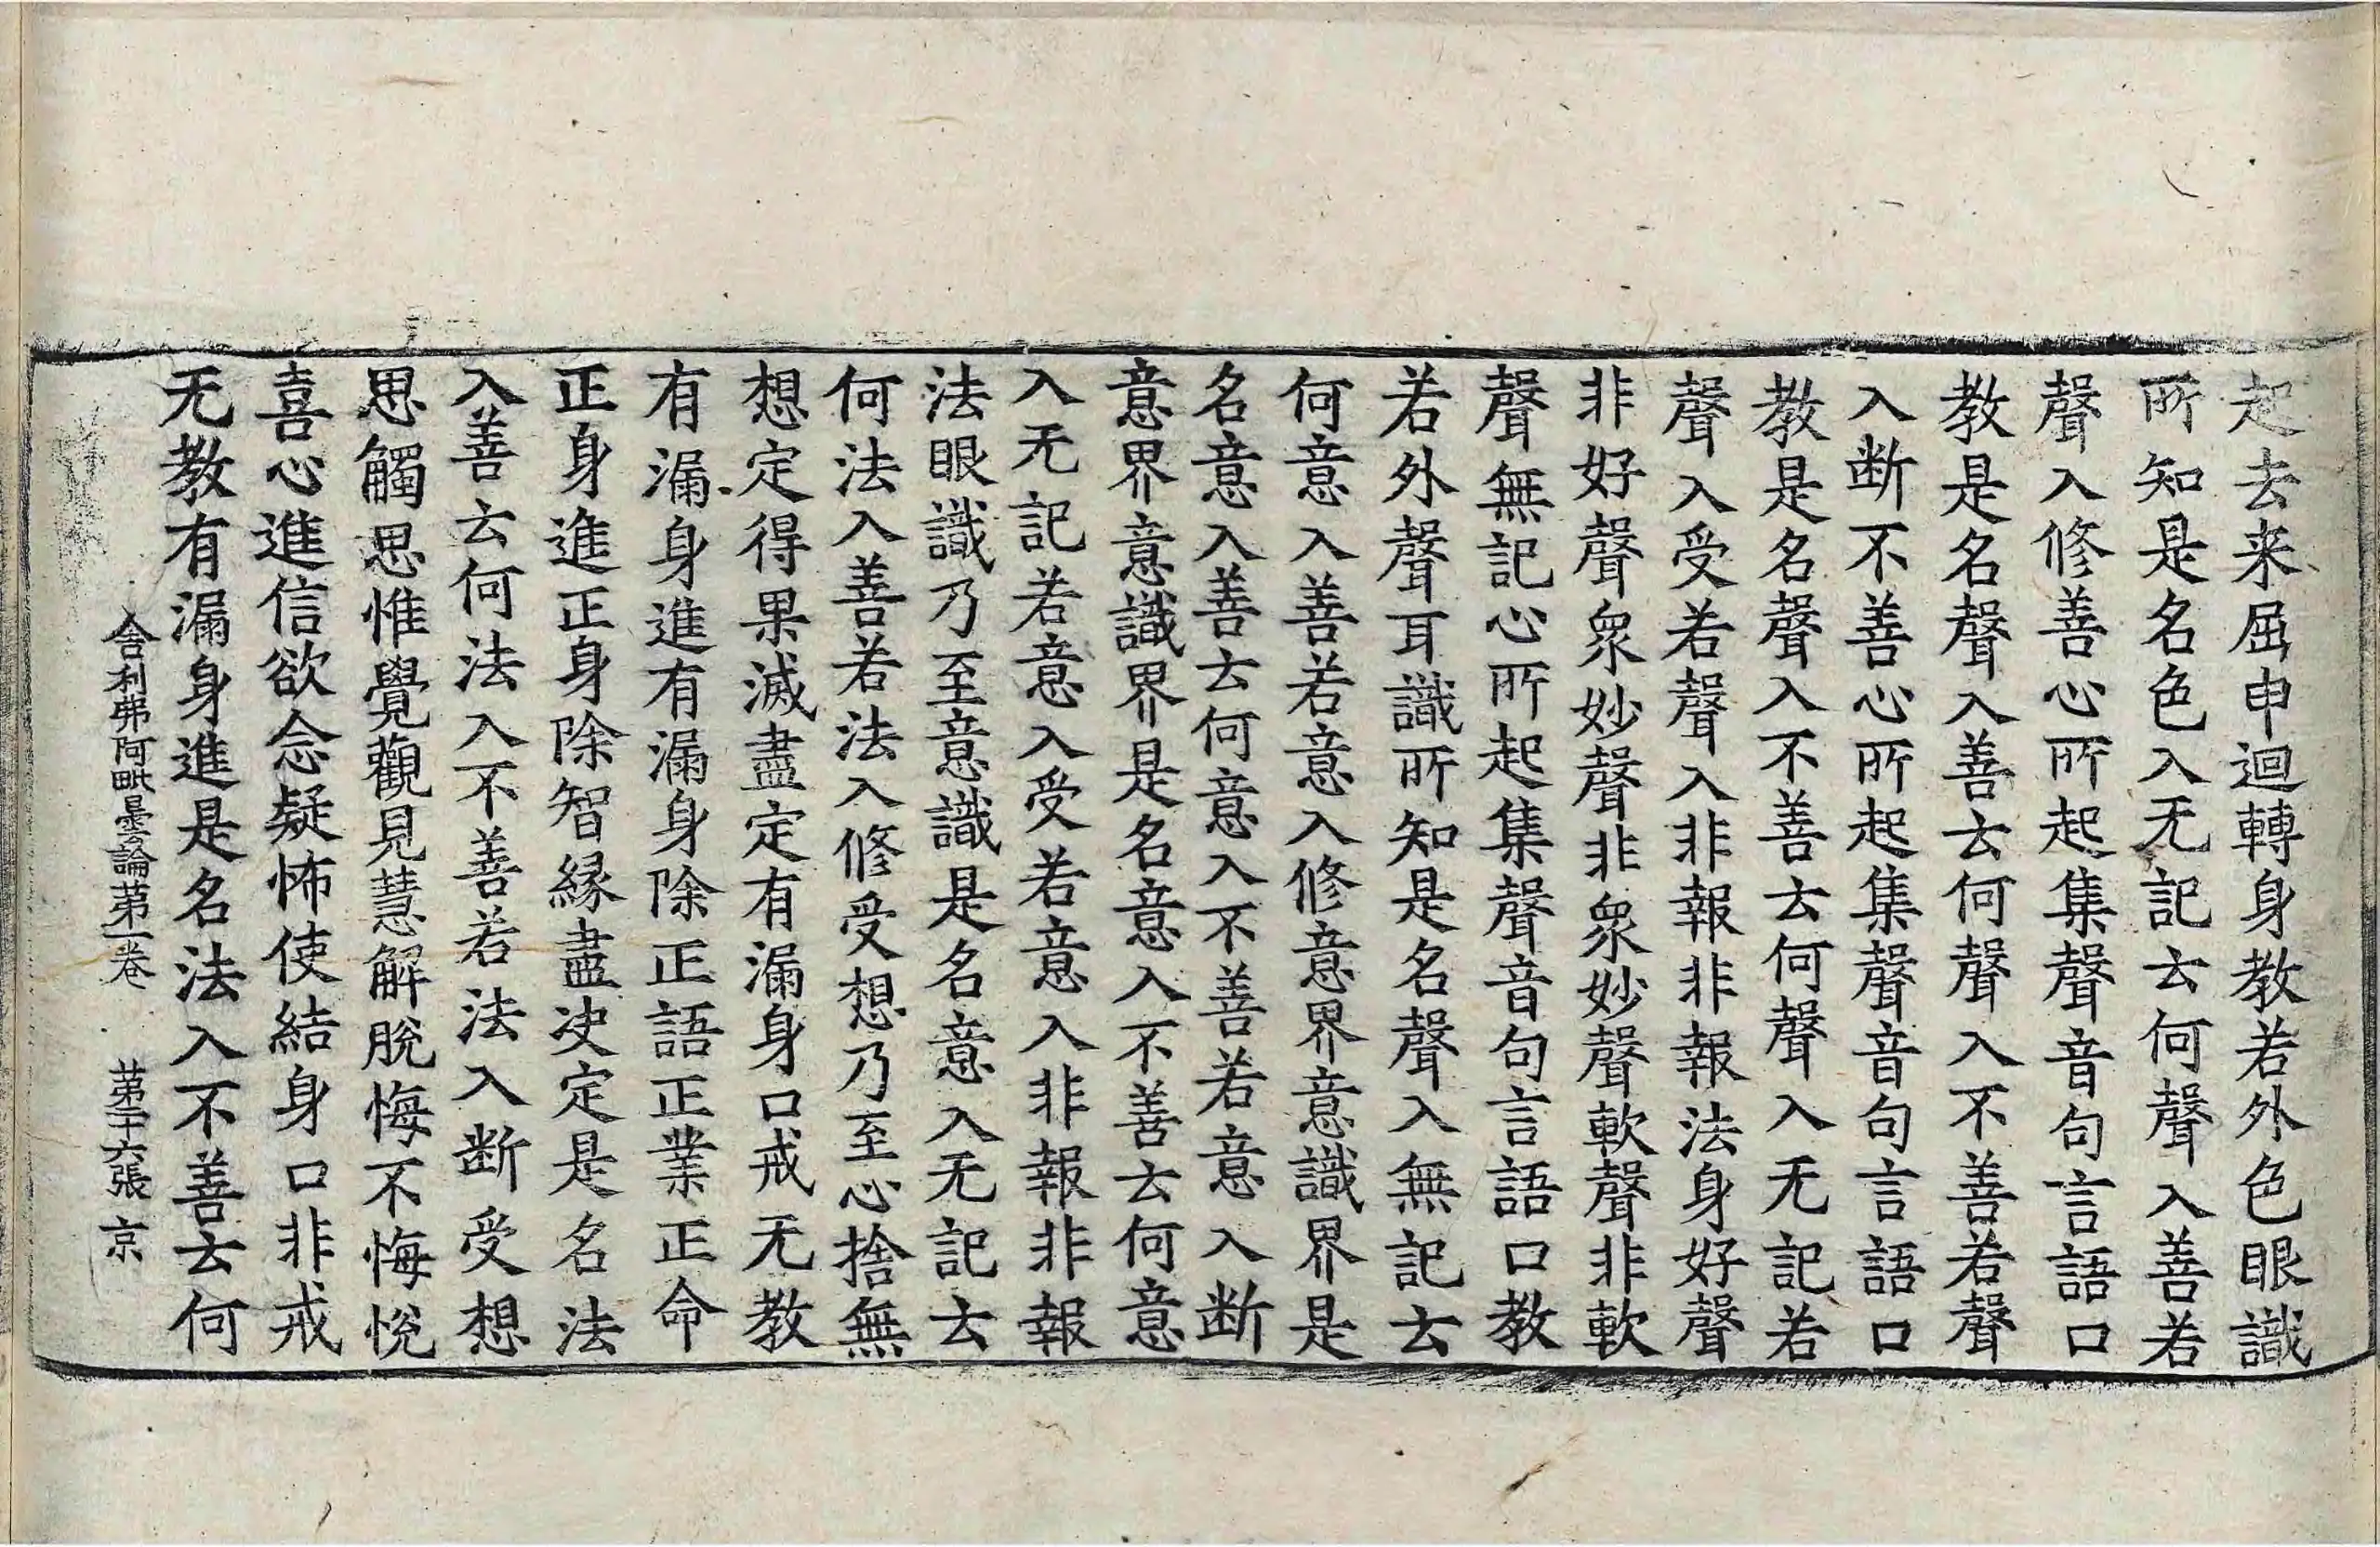 起去来屈申迴轉身教若外色眼識
所知是名色入无記云何聲入善若
聲入修善心所起集聲音句言語口
教是名聲入善云何聲入不善若聲
入断不善心所起集聲音句言語口
教是名聲入不善云何聲入无記若
聲入受若聲入非報非報法身好聲
非好聲衆妙聲非衆妙聲軟聲非軟
聲無記心所起集聲音句言語口教
若外聲耳識所知是名聲入無記云
何意入善若意入修意界意識界是
名意入善云何意入不善若意入断
意界意識界是名意入不善云何意
入无記若意入受若意入非報非報
法眼識乃至意識是名意入无記云
何法入善若法入修受想乃至心捨無
想定得果滅盡定有漏身口戒无教
有漏身進有漏身除正語正業正命
正身進正身除智縁盡决定是名法
入善云何法入不善若法入断受想
思觸思惟覺觀見慧解脫悔不悔悅
喜心進信欲念疑怖使結身口非戒
无教有漏身進是名法入不善云何
舍利弗阿毗曇論苐一卷 苐二十六張 京